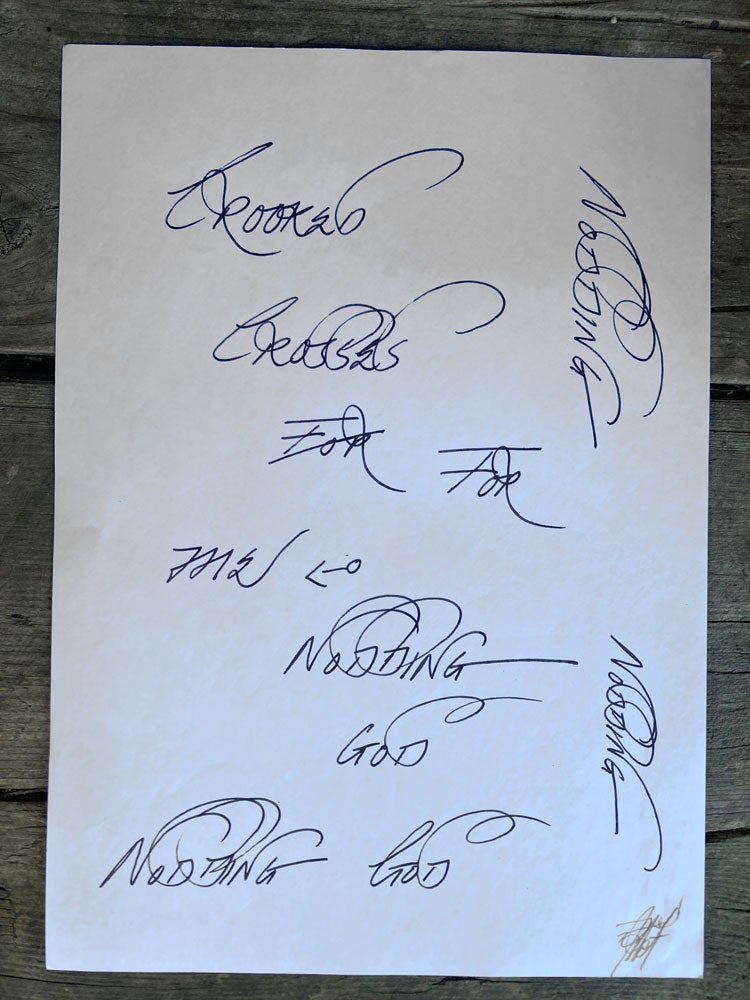 CROOKED
CROSSES
FOR FOR
THE
NODDING
GOD
NODDING GOD
NODDING
NODDING